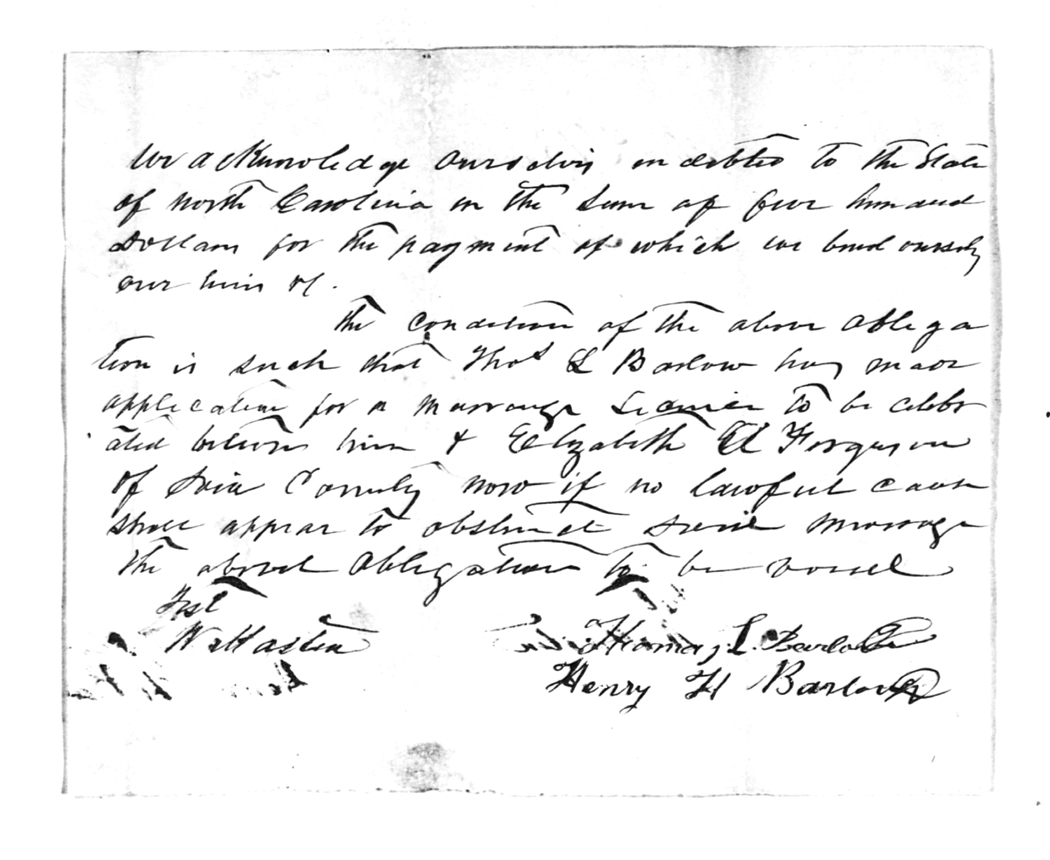 We acknowledge ourselvis indebted to the State
of North Carolina in the Sum of five hundred
Dollars for the payment of which we bind ourselvs
our heirs &c.
the condition of the above obliga
tion is such that Thos L Barlow has made
application for a marriage License to be celebr
ated between him & Elizabeth Ferguson
of said County now if no lawful cause
shall appear to obstruct said marriage
the above obligation to be void
Test
Thomas L. Barlow
Henry H Barlow